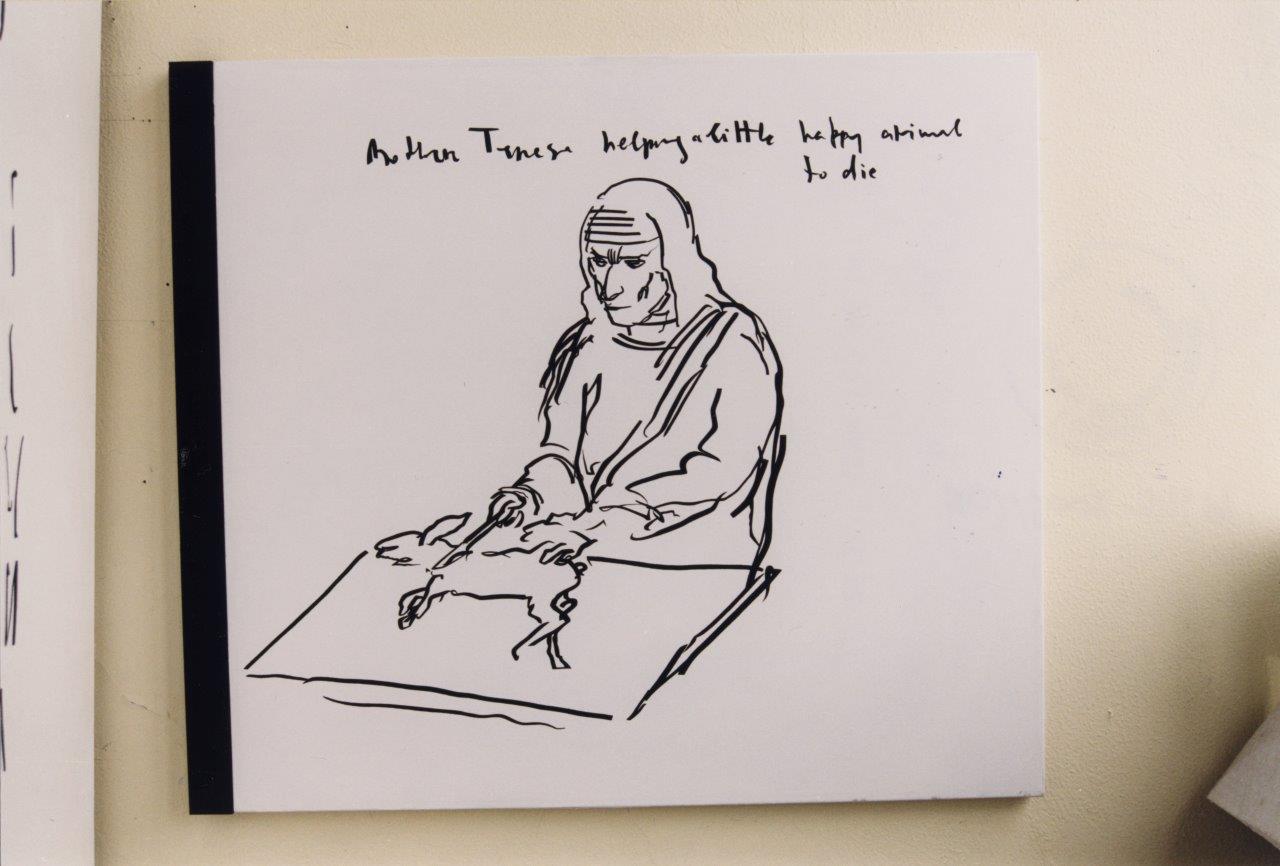 Mother Teresa helping a little happy animal
to die